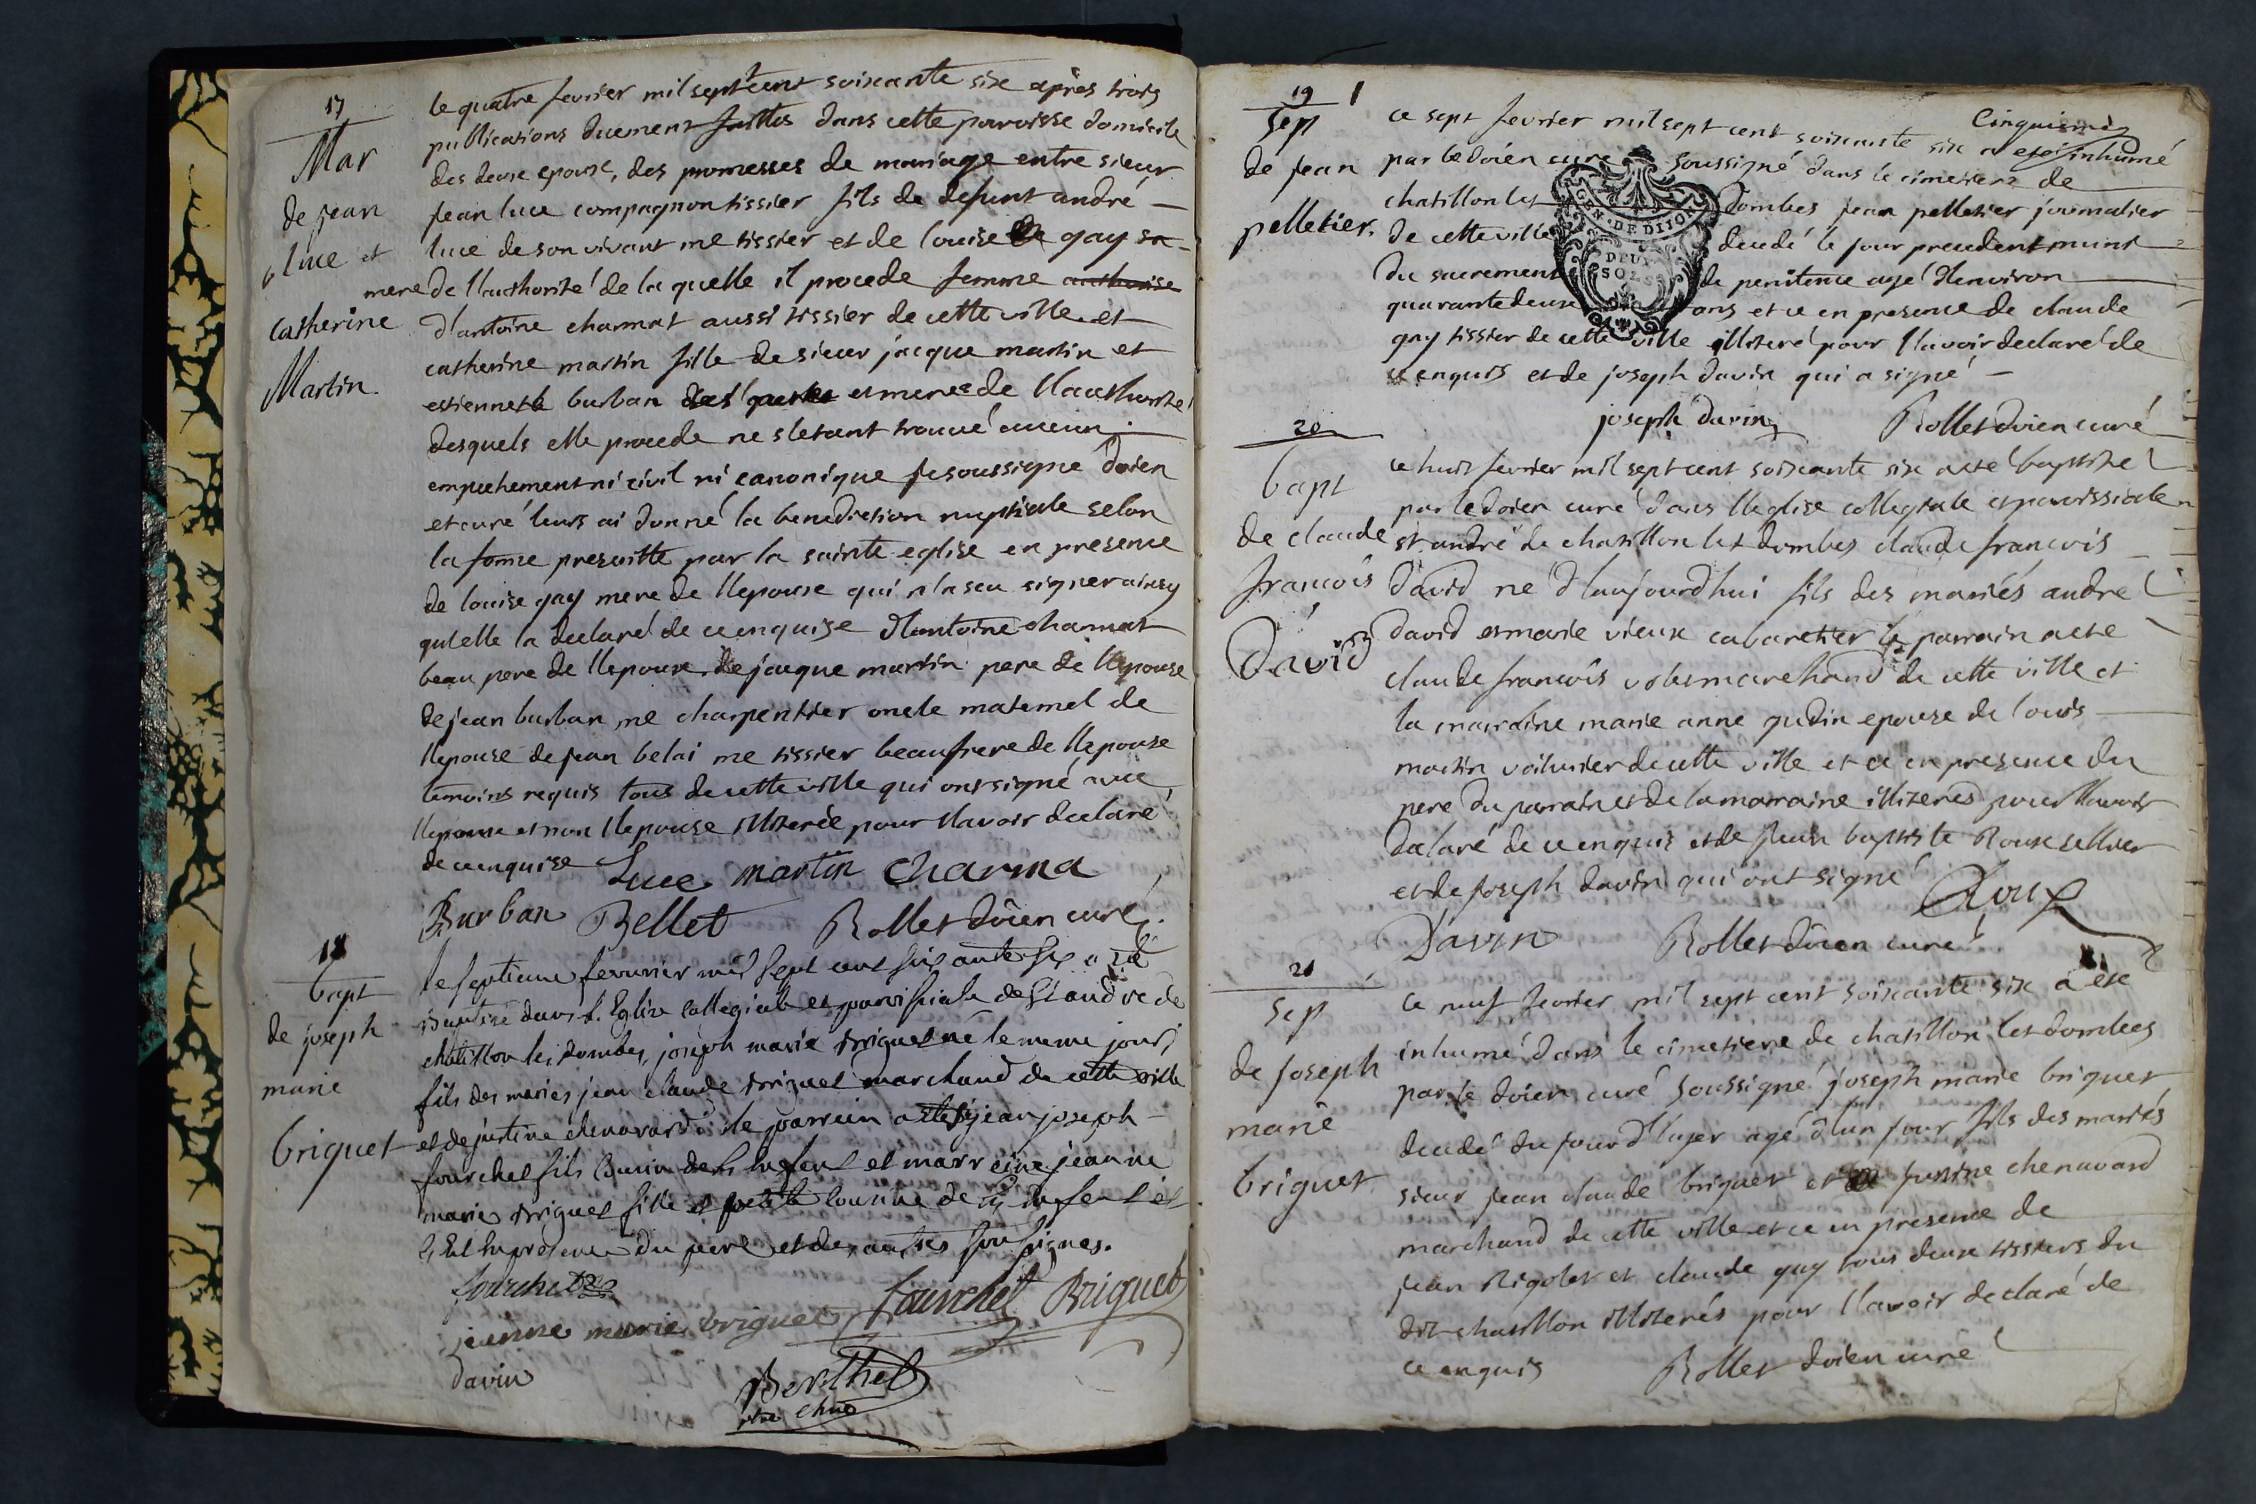 17
Mar
de jean
luce et
catherine
Martin
le quatre fevrier mil sept cent soixante six après trois
publications duement faittes dans cette parroisse domicile
des deux epoux, des promesses de mariage entre sieur
jean luce compagnon tissier fils de defunt andré
luce de son vivant me tissier et de louise gay sa
mere de l'authorité de la quelle il procede femme authorise
d'antoine charmat aussi tissier de cette ville et
catherine martin fille de sieur jacque martin et
estiennette burban et mere de l'authorité
desquels elle procede ne s'etant trouvé aucun
empechement ni civil ni canonique je soussigné doien
et curé leurs ai donné la benediction nuptiale selon
la forme prescritte par la sainte eglise en presence
de louise gay mere de l'epoux qui n'a seu signer ainsy
qu'elle la declaré de ce enquise d'antoine charmat
beau pere de l'epoux de jacque martin pere de l'epouse
de jean burban me charpentier oncle maternel de
l'epouse de jean belai me tissier beaufrere de l'epouse
temoins requis tous de cette ville qui ont signé avec
l'epoux et non l'epouse illiterée pour l'avoir declaré
de ce enquise Luce martin Charma
Burban Bellet Rollet doien curé
18
bapt
de joseph
marie
briquet
le septieme fevrier mil sept cent soixante six a été
Baptisé dans l'Eglise collegiale et parroissiale de St andré de
chatillon les dombes, joseph marie briquet né le meme jour,
fils des mariés jean claude briquet marchand de cette ville
et de justine chenavard: le parrein a été sr jean joseph
fourchet fils cousin de l'enfent et marreine jeanne
marie briquet fille et petite cousine de l'enfent et
ce En presence du pere et des autres soussignes.
fourchet
jeanne marie briquet Fourchet Briquet
davin
Berthet
19
Sep
de jean
pelletier
Cinquieme
ce sept fevrier mil sept cent soixante six a eté inhumé
par le doien curé soussigné dans le cimetiere de
chatillon les dombes jean pelletier journalier
de cette ville decedé le jour precedent muni
du sacrement de penitence agé d'environ
quarante deux ans et ce en presence de claude
gay tissier de cette ville illiteré pour l'avoir declaré de
ce enquis et de joseph davin qui a signé
joseph davin Rollet doien curé
GEN. DE DIJON
DEUX
SOLS
20
bapt
de claude
francois
David
ce huit fevrier mil sept cent soixante six a eté baptisé
par le doien curé dans l'eglise collegiale et parroissiale
st andré de chatillon les dombes claude francois
david né d'aujourd'hui fils des mariés andré
david et marie vieux cabaretier le parrain a eté
claude francois marchand de cette ville et
la marraine marie anne gudin epouse de louis
martin voiturier de cette ville et ce en presence du
pere du parrain et de la marraine illiterés pour l'avoir
declaré de ce enquis et de jean baptiste Roux sellier
et de joseph davin qui ont signé Roux
Davin Rollet doien curé
21
Sep
de joseph
marie
briquet
ce neuf fevrier mil sept cent soixante six a eté
inhumé dans le cimetiere de chatillon les dombes
par le doien curé soussigné joseph marie briquet
decedé du jour d'hyer agé d'un jour fils des mariés
sieur jean claude briquet et justine chenavard
marchand de cette ville et ce en presence de
jean Rigolet et claude gay tous deux tissiers du
dit chatillon illiterés pour l'avoir declaré de
ce enquis Rollet doien curé